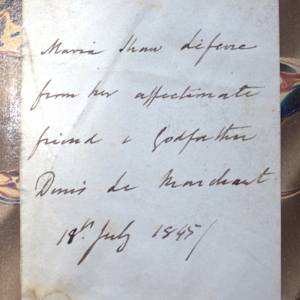 Maria Shaw Lefevre
from her affectionate
friend & Godfather
Denis Le Marchant
18th July 1845